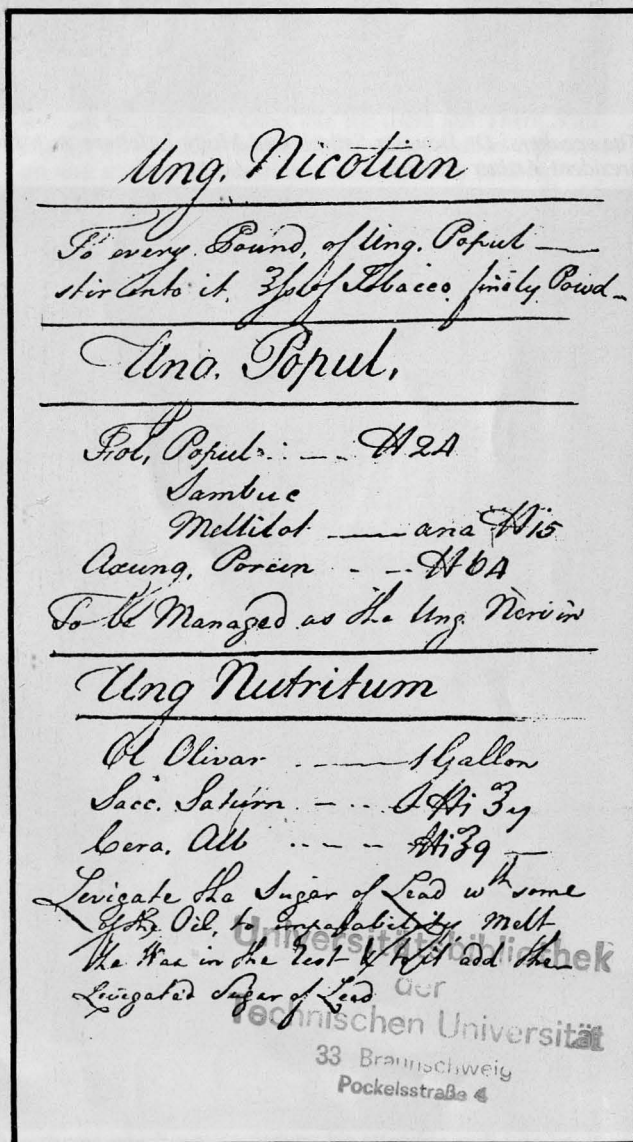 Ung. Nicotian
To every Pound, of Ung. Popul —
stir into it, ʒſs of Tobacco finely Powd–
Ung. Popul,
Fol, Popul: . — . ℔ 24
Sambuc
Mellilot —— ana ℔ 15
Axung. Porcin - — ℔ 64
To be Managed as the Ung. Nervin
Ung Nutritum
Ol Olivar . —— 1 Gallon
Sacc. Saturn — . .
Cera. Alb . . - - - ℔i ʒ9 —
Levigate tha Sugar of Lead wth some
of the Oil, to impalability, Melt
the Wax in the rest & to it add the
Levigated Sugar of Lead
Universitätsbibliothek
der
Technischen Universität
33 Braunschweig
Pockelsstraße 4